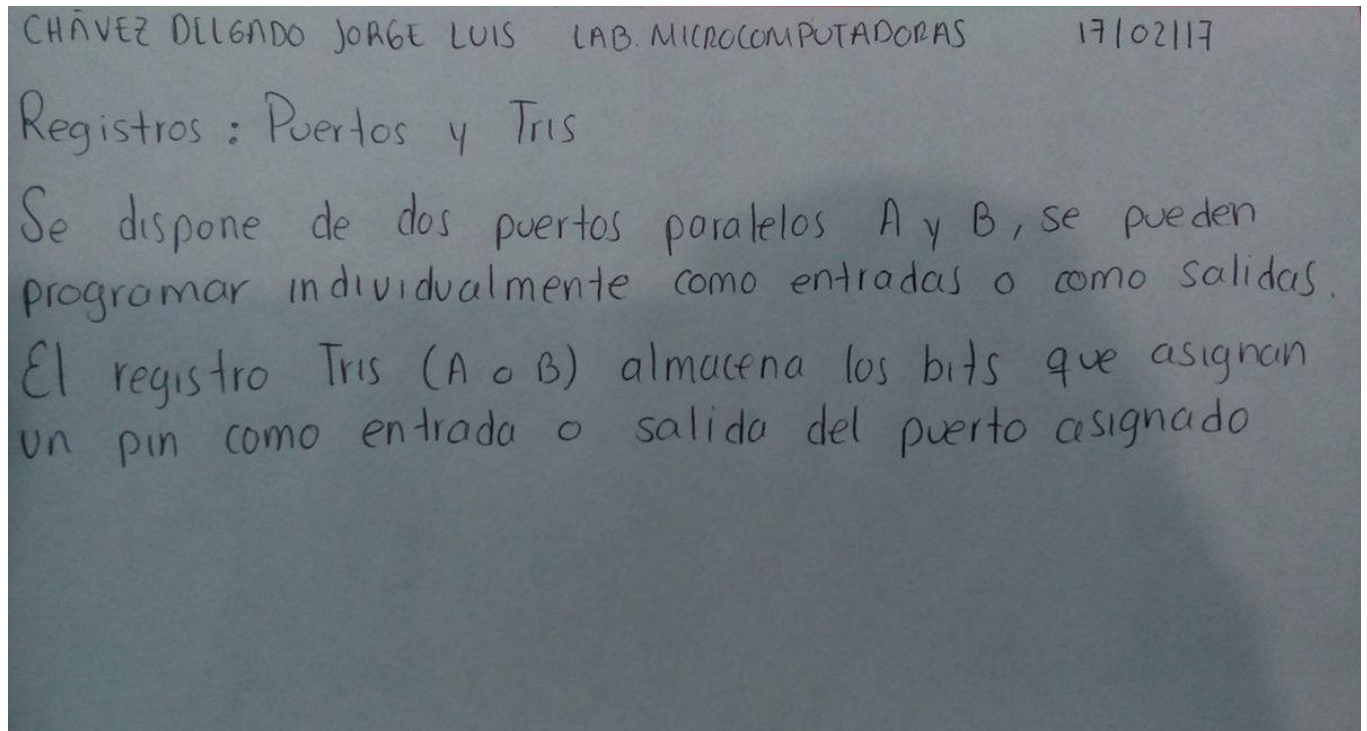 CHÁVEZ DELGADO JORGE LUIS LAB. MICROCOMPUTADORAS 17/02/17
Registros: Puertos y Tris
Se dispone de dos puertos paralelos A y B, se pueden
programar individualmente como entradas o como salidas.
El registro Tris (A o B) almacena los bits que asignan
un pin como entrada o salida del puerto asignado